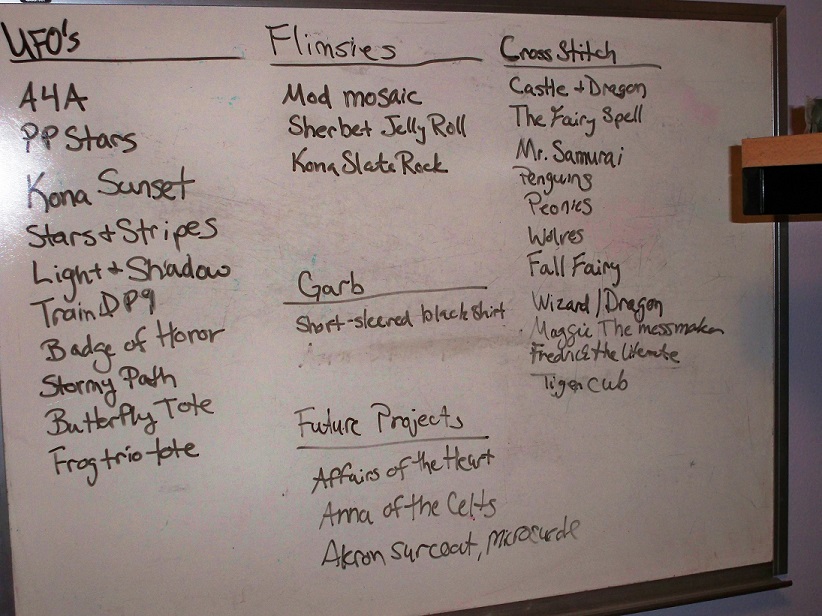 UFO's
A4A
PP Stars
Kona Sunset
Stars + Stripes
Light + Shadow
Train DP9
Badge of Honor
Stormy Path
Butterfly Tote
Frog trio tote
Flimsies
Mod mosaic
Sherbet Jelly Roll
Kona Slate Rock
Garb
Short-sleeved black shirt
Future Projects
Affairs of the Heart
Anna of the Celts
Akron Surcoat,
Cross Stitch
Castle + Dragon
The Fairy Spell
Mr. Samurai
Penguins
Peonies
Wolves
Fall Fairy
Wizard / Dragon
Maggie The messmaker
Fredrick the literate
Tiger cub